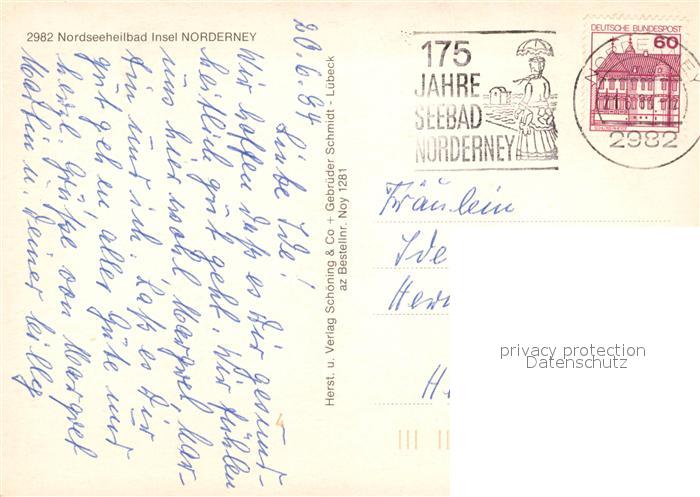 2982 Nordseeheilbad Insel NORDERNEY
20.6.84
Liebe Ide!
Wir hoffen daß es Dir gesund-
heitlich gut geht. Wir fühlen
uns hier wohl Margret, Mar-
tin und ich. Laß es Dir
gut gehen, alles Gute und
herzl. Grüße von Margret
Martin u. Deiner
Herst. u. Verlag Schöning & Co + Gebrüder Schmidt - Lübeck
az Bestellnr. Noy 1281
175
JAHRE
SEEBAD
NORDERNEY
DEUTSCHE BUNDESPOST
60
2982
Fräulein
Ide
privacy protection
Datenschutz